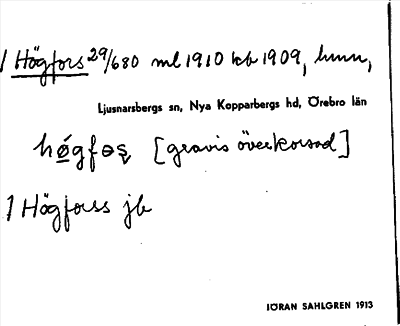 1 Högfors 29/680 ml 1910 kb 1909, hmn,
Ljusnarsbergs sn, Nya Kopparbergs hd, Örebro län
hǿgfɵș [gravis överkorsad]
1 Högforss jb
IÖRAN SAHLGREN 1913